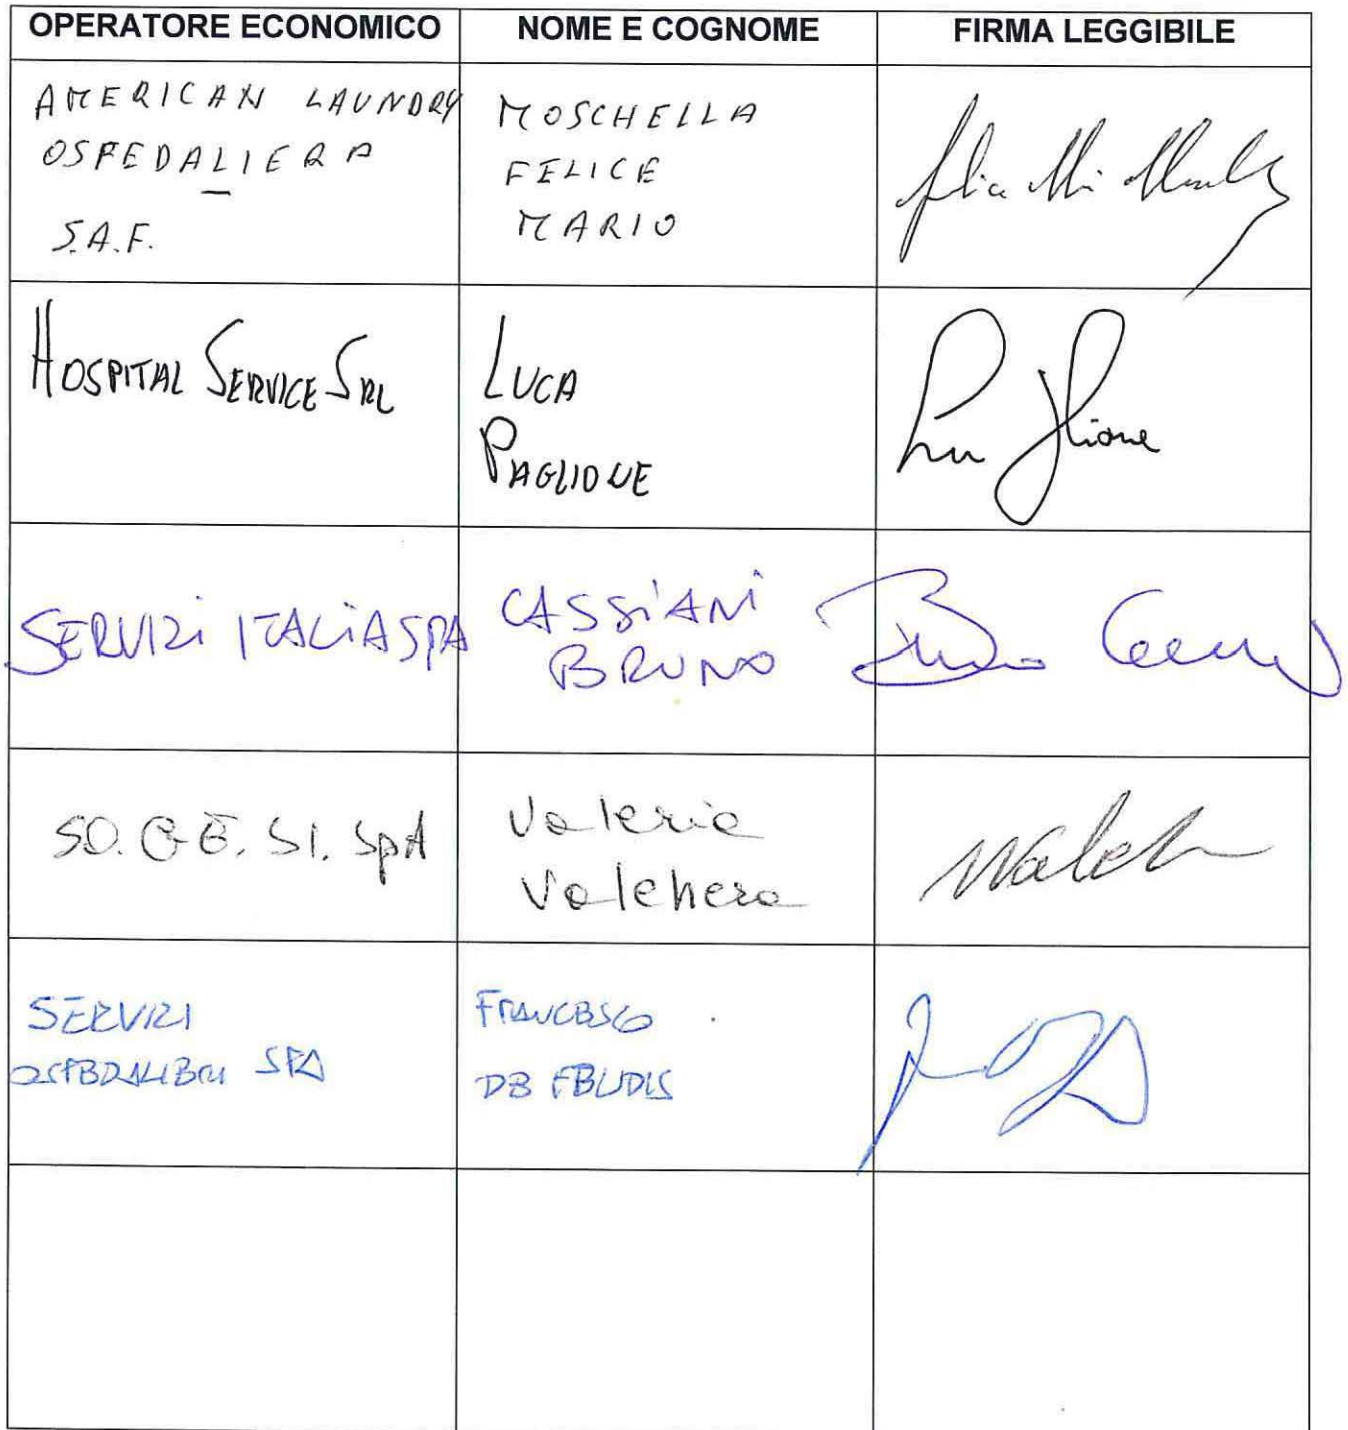 OPERATORE ECONOMICO NOME E COGNOME FIRMA LEGGIBILE
AMERICAN LAUNDRY
OSPEDALIERA
S.A.F.
MOSCHELLA
FELICE
MARIO
HOSPITAL SERVICE SRL
LUCA
PAGLIONE
SERVIZI ITALIA SPA
CASSIANI
BRUNO
SO.GE.SI. SpA
Valeria
Valchera
SERVIZI
OSPEDALIERI SPA
FRANCESCO